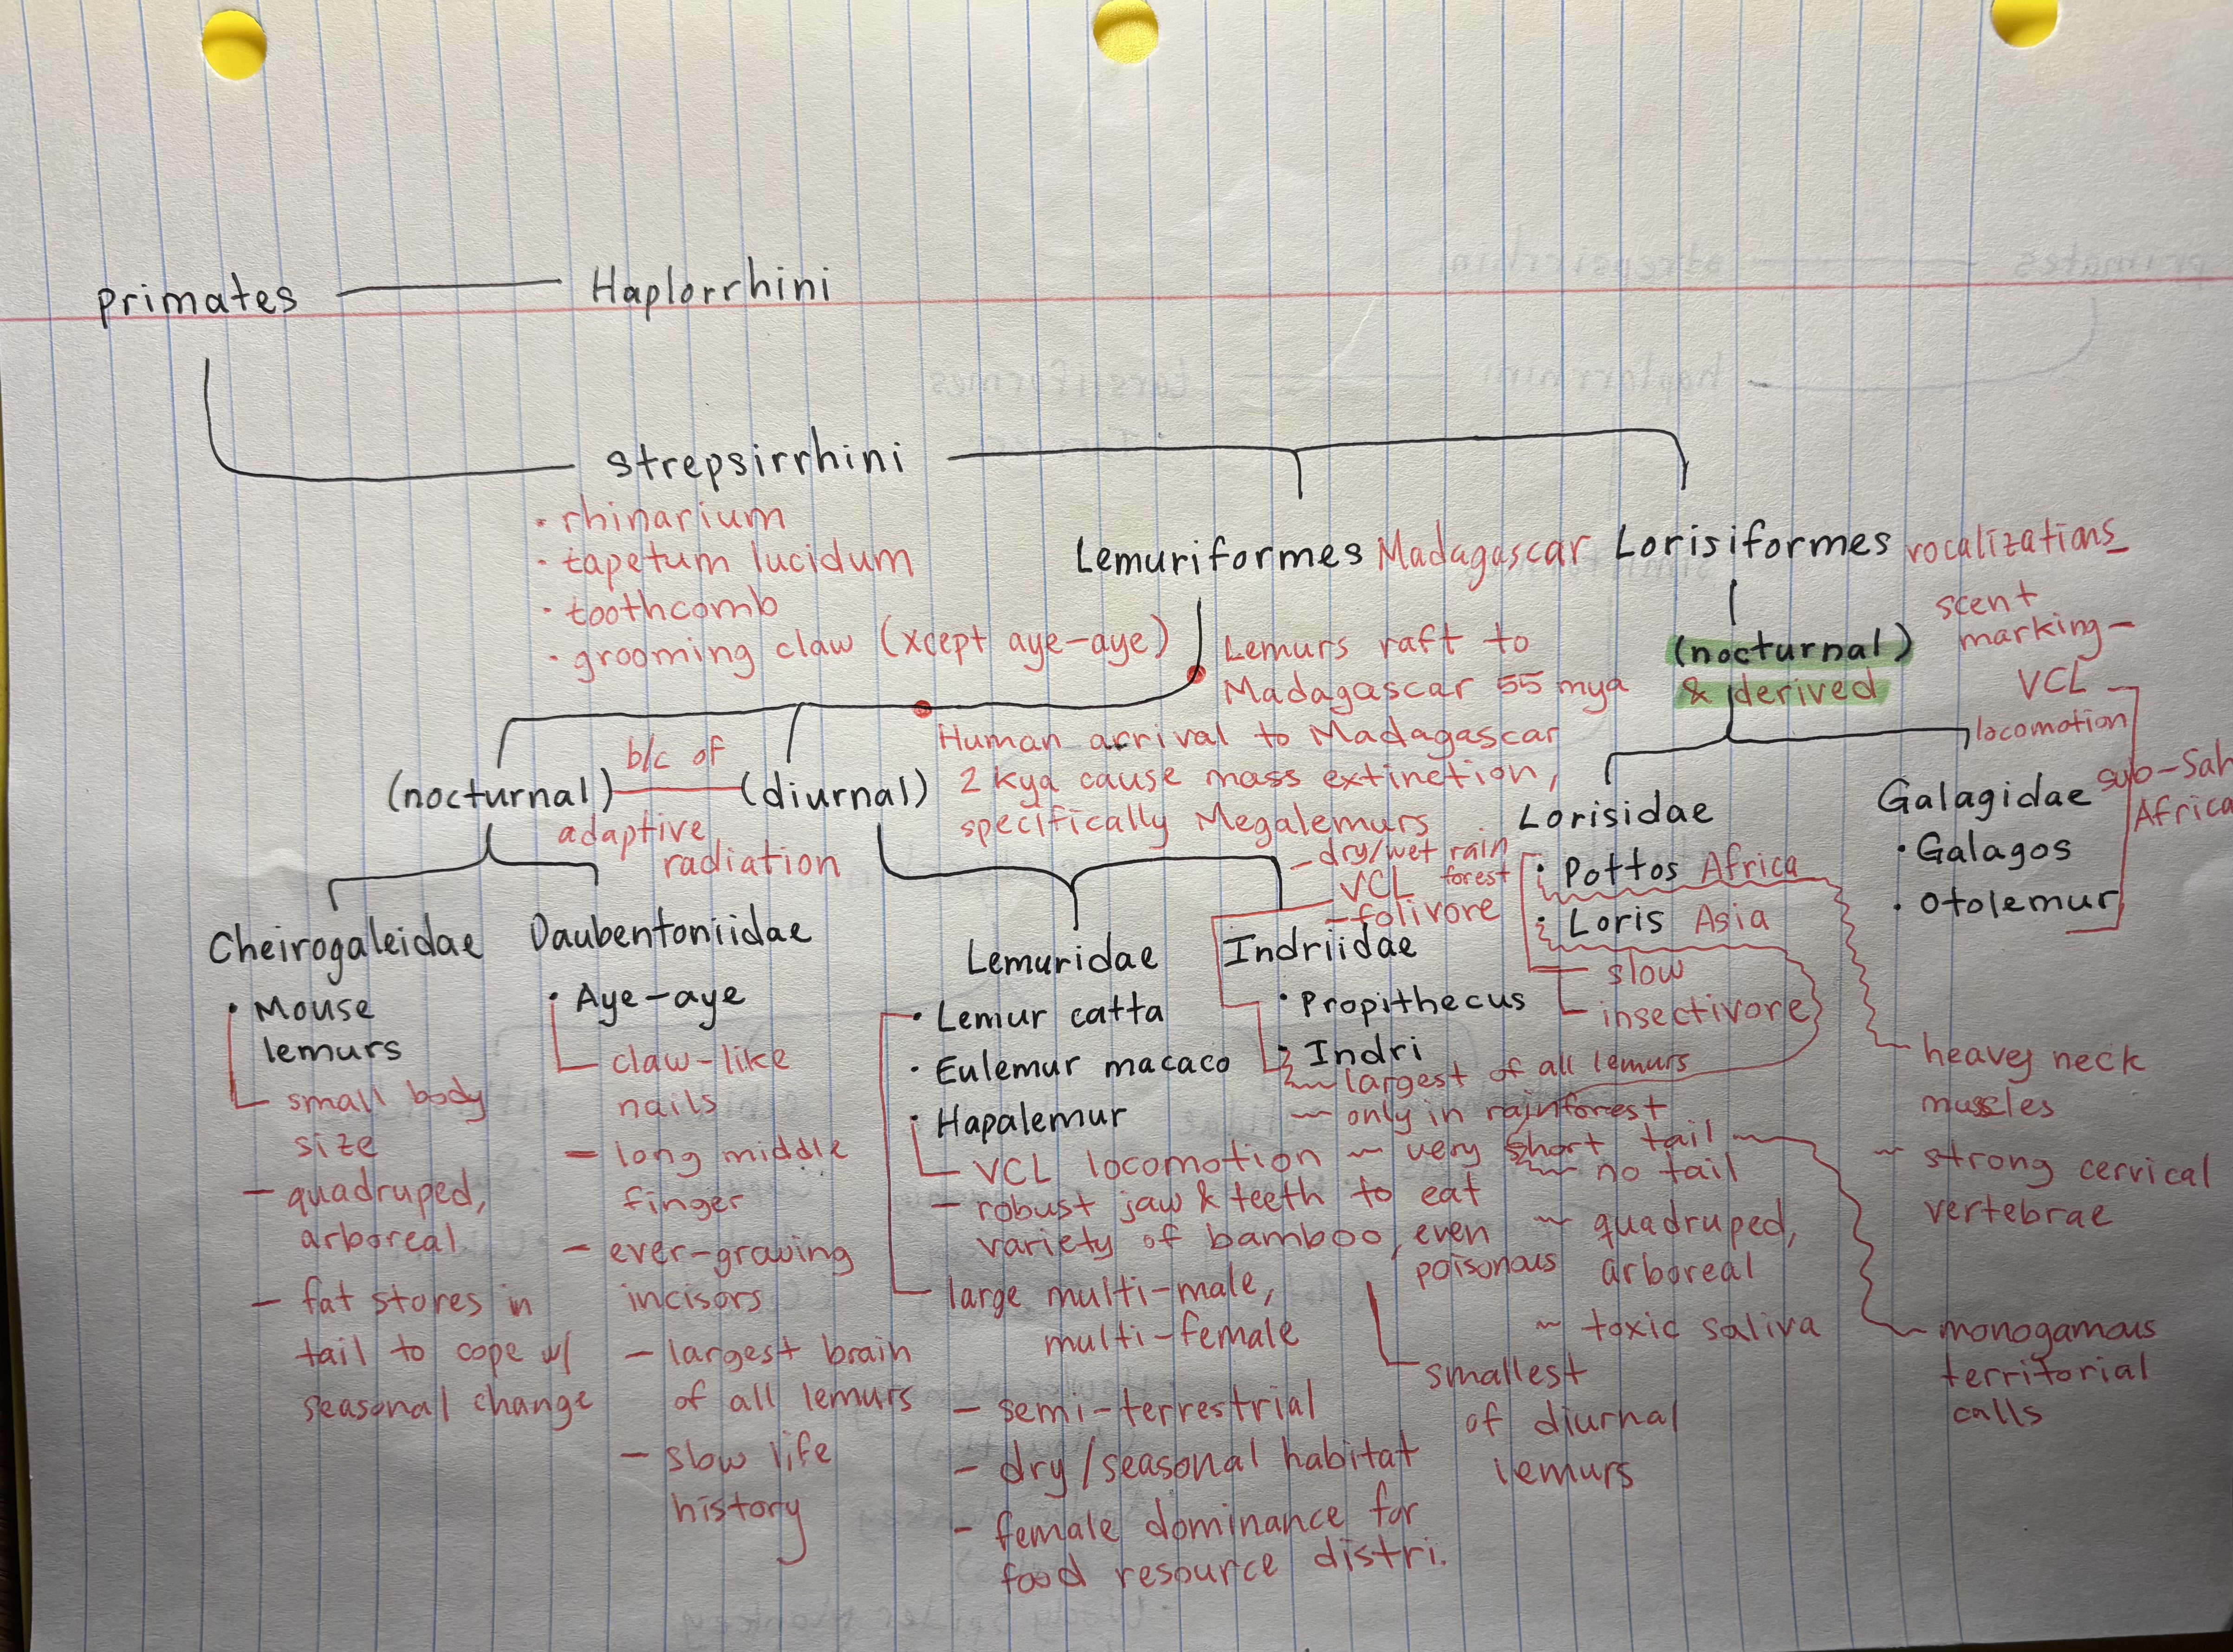 primates
Haplorrhini
strepsirrhini
· rhinarium
· tapetum lucidum
· toothcomb
· grooming claw (xcept aye-aye)
Lemuriformes Madagascar
Lemurs raft to
Madagascar 55 mya
Human arrival to Madagascar
2 kya cause mass extinction,
specifically Megalemurs
(nocturnal)
b/c of
adaptive
radiation
(diurnal)
Cheirogaleidae
· Mouse
lemurs
- small body
size
- quadruped,
arboreal
- fat stores in
tail to cope w/
seasonal change
Daubentoniidae
· Aye-aye
- claw-like
nails
- long middle
finger
- ever-growing
incisors
- largest brain
of all lemurs
- slow life
history
Lemuridae
· Lemur catta
· Eulemur macaco
· Hapalemur
- VCL locomotion
- robust jaw & teeth to eat
variety of bamboo, even
poisonous
smallest
of diurnal
lemurs
- large multi-male,
multi-female
- semi-terrestrial
- dry/seasonal habitat
- female dominance for
food resource distri.
- dry/wet rain
forest
VCL
- folivore
Indriidae
· Propithecus
· Indri
~ largest of all lemurs
~ only in rainforest
~ very short tail
monogamous
territorial
calls
Lorisiformes
vocalizations
scent
marking
(nocturnal)
& derived
VCL
locomotion
sub-Sah
Africa
Lorisidae
· Pottos Africa
· Loris Asia
- slow
- insectivore
heavey neck
muscles
~ strong cervical
vertebrae
~ no tail
~ quadruped,
arboreal
~ toxic saliva
Galagidae
· Galagos
· Otolemur